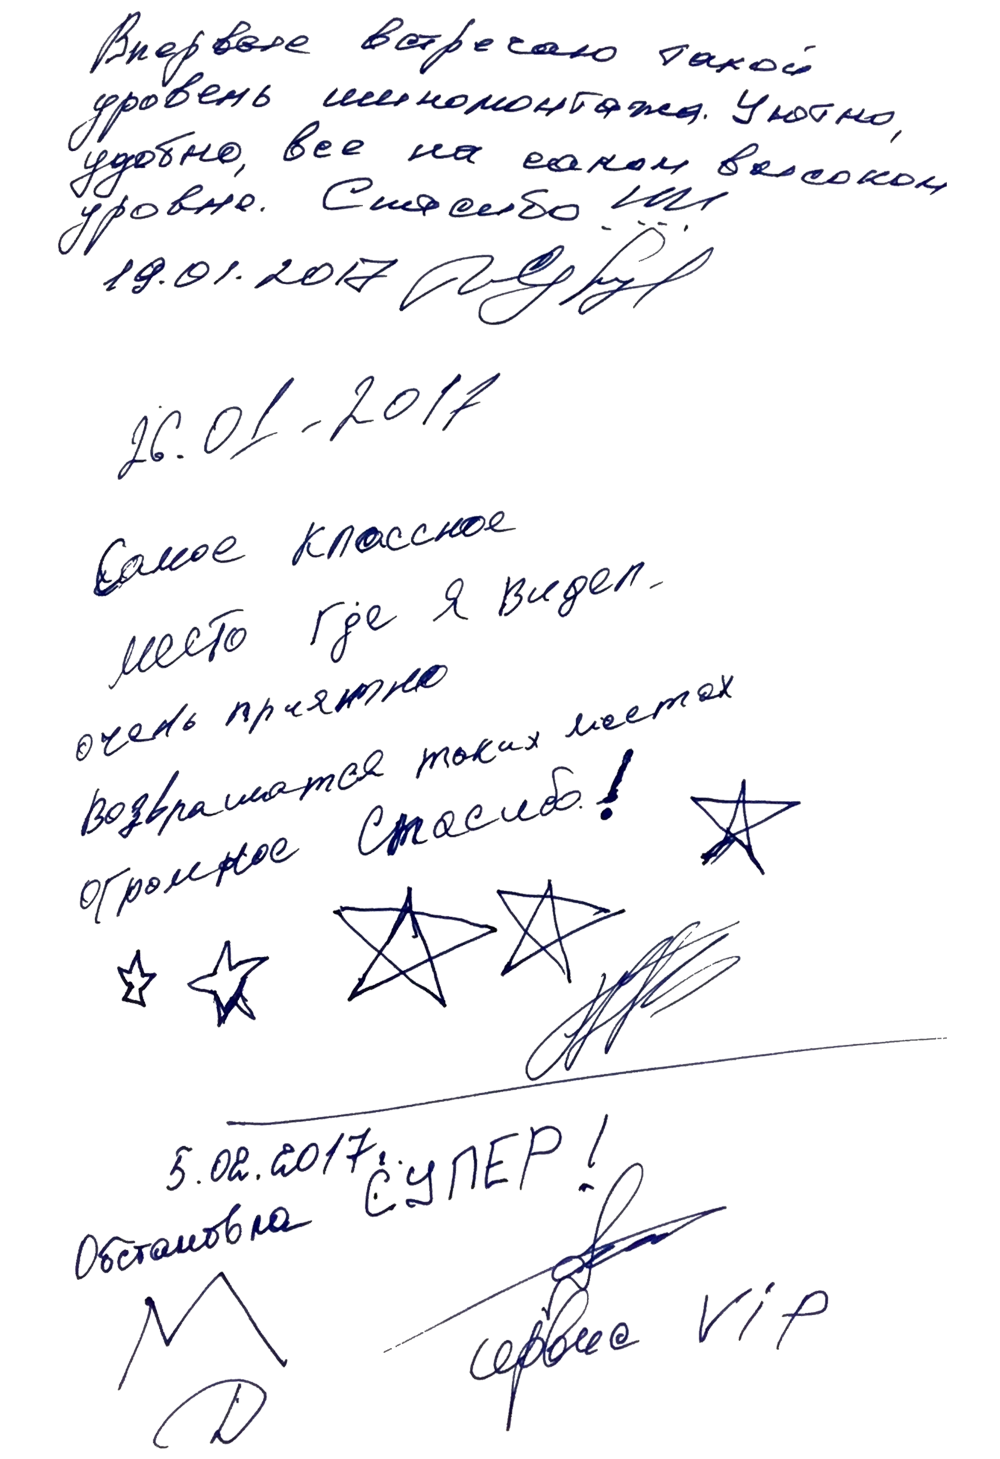 Впервые встречаю такой
уровень шиномонтажа. Уютно,
удобно, все на самом высоком
уровне. Спасибо!!!
19.01.2017
26.01-2017
Самое классное
место где я видел.
очень приятно
возвращатся таких местах
огромное спасибо!
5.02.2017г.
Обстановка СУПЕР!
сервис ViP